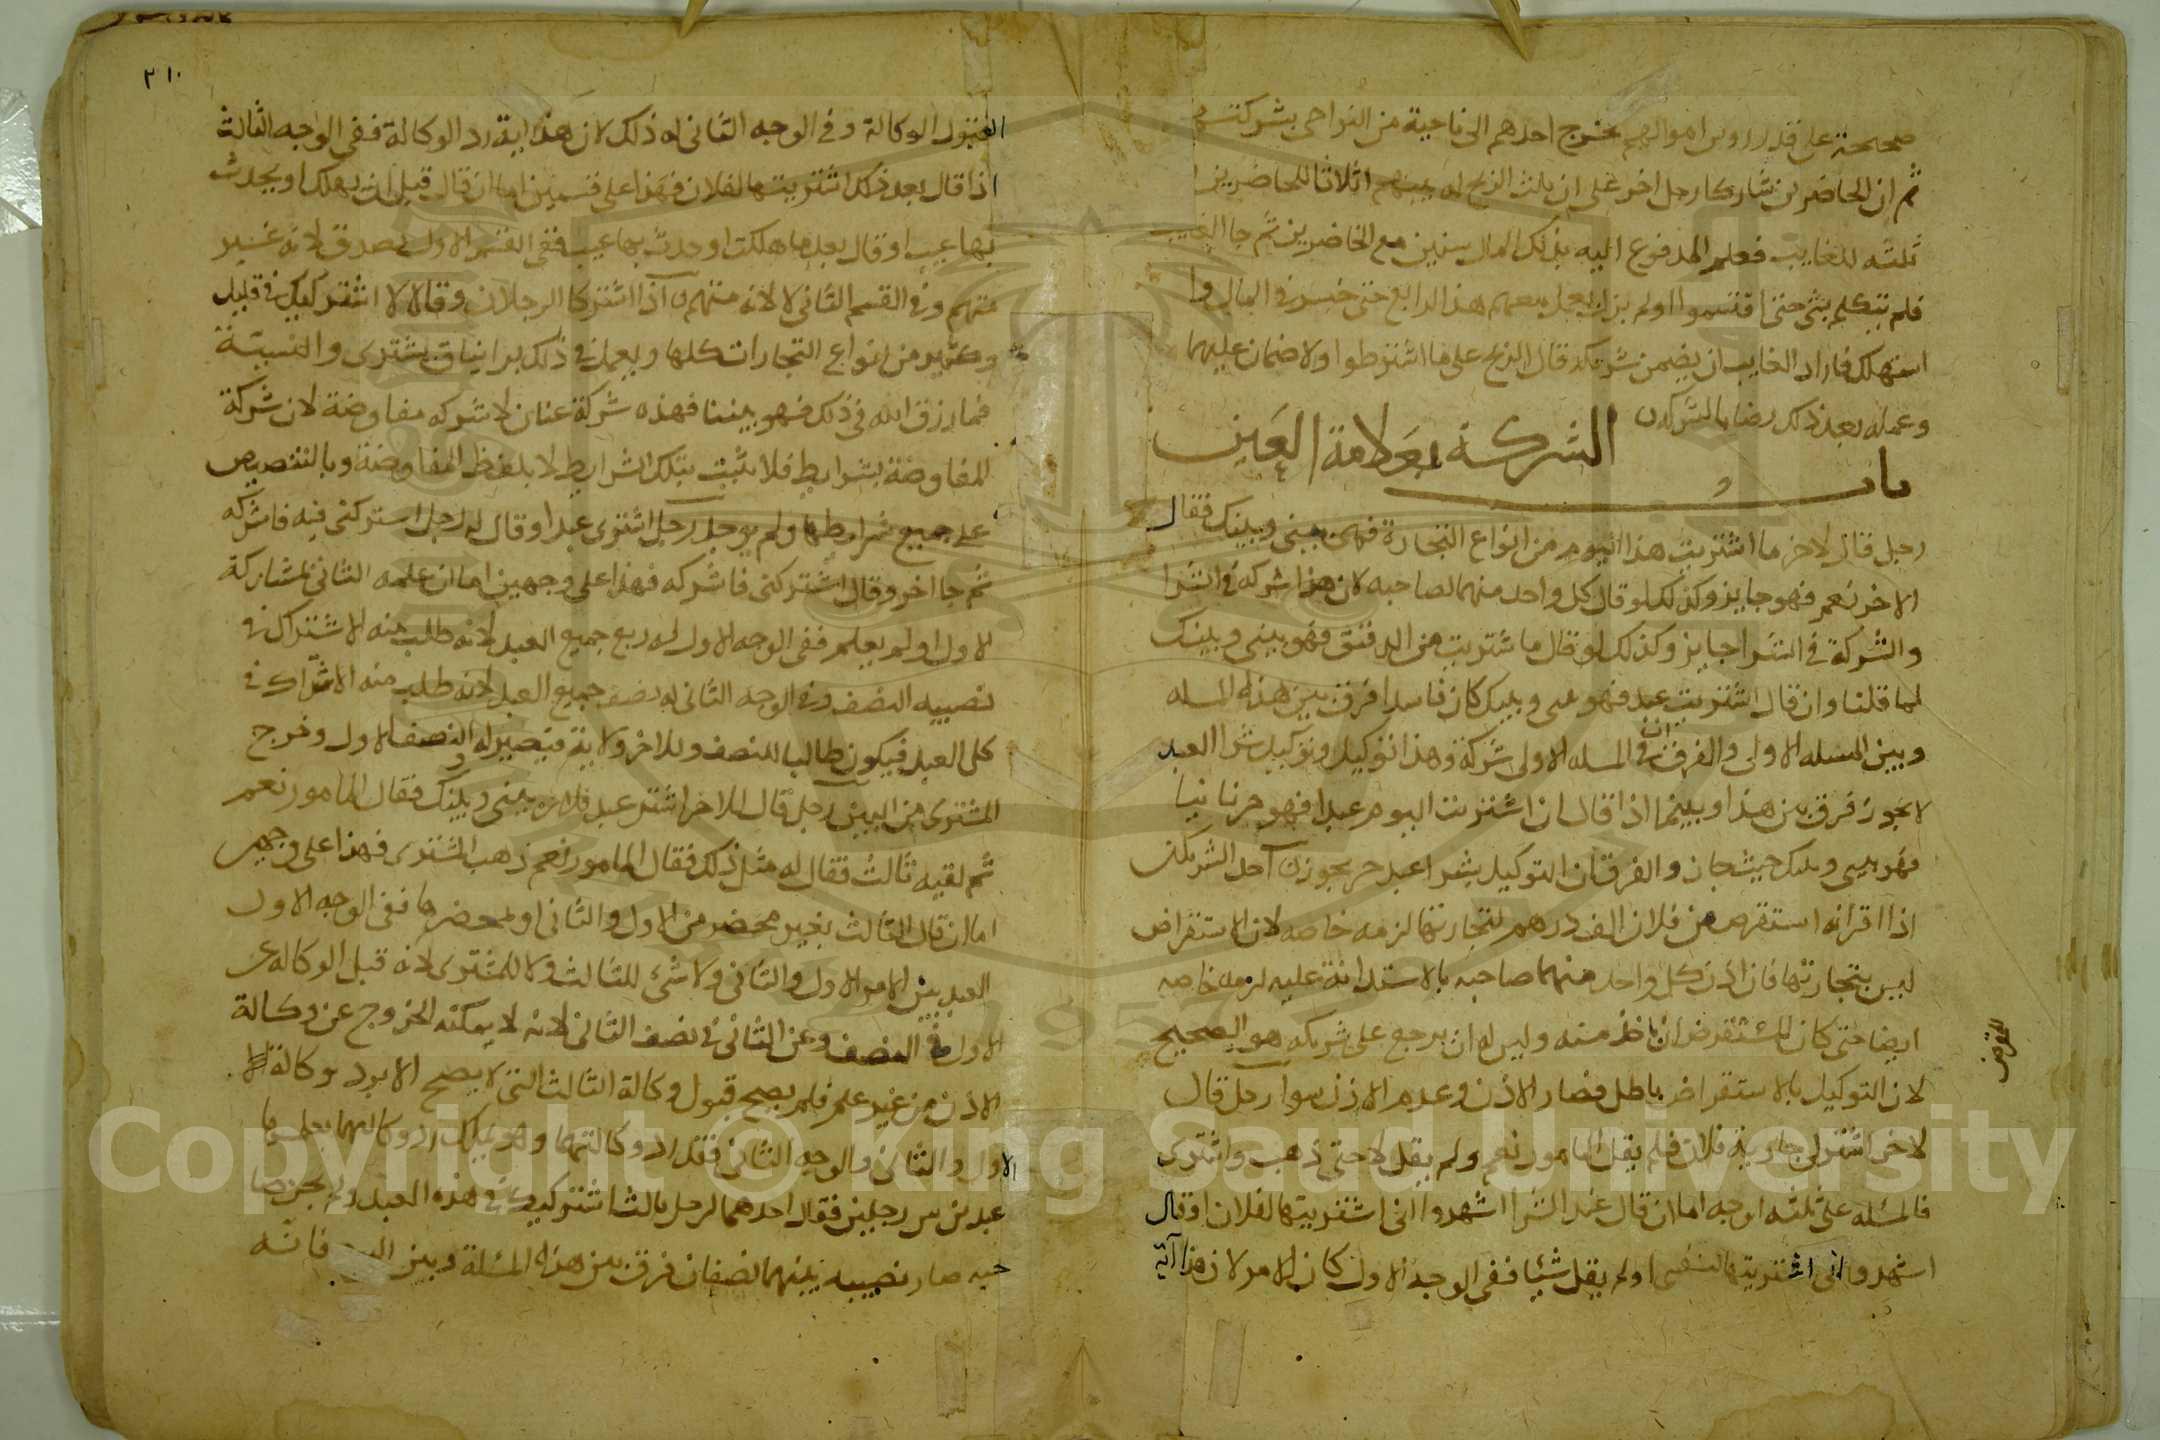 صحيحة على قدر روس اموالهم فخرج احدهم الى ناحية من النواحى بشركتهم
ثم ان الحاضرين شاركا رجل اخر على ان ثلث الربح له بينهم اثلاثا للحاضرين
ثلثه للغايب فعمل المدفوع اليه بذلك المال سنين مع الحاضرين ثم جا الغايب
فلم يتكلم بشى حتى اقتسموا ولم يزل يعمل معهم هذا الرابع حتى خسر فى المال وا
استهلك فاراد الغايب ان يضمن شريكه قال الربح على ما اشترطوا ولا ضمان عليهما
وعمله بعد ذلك رضا بالشركة
باب الشركة بعلامة العين
رجل قال لاخر ما اشتريت هذا اليوم من انواع التجارة فهى بينى وبينك فقال
الاخر نعم فهو جايز وكذلك لو قال كل واحد منهما لصاحبه لان هذا شركة فى الشرا
والشركة فى الشرا جايز وكذلك لو قال ما اشتريت من الدقيق فهو بينى وبينك
لما قلنا وان قال اشتريت عبد فهو بينى وبينك كان فاسدا فرق بين هذه المسله
وبين المسله الاولى والفرق ان فى المسله الاولى شركة وهذا توكيل وتوكيل شرا العبد
لا يجوز فرق بين هذا وبينما اذا قال ان اشتريت اليوم عبدا فهو حر ثانيا
فهو بينى وبينك حيث جاز والفرق ان التوكيل بشرا عبد حر يجوز احد الشريكين
اذا اقر انه استقرض من فلان الف درهم لتجارتها لزمه خاصه لان الاستقراض
ليس بتجارتها فان اذن كل واحد منهما صاحبه بالاستدانة عليه لزمه خاصه
ايضا حتى كان للمستقرض ان ياخذ منه وليس له ان يرجع على شريكه هو الصحيح
للمقرض
لان التوكيل بالاستقراض باطل فصار الاذن وعدم الاذن سوا رجل قال
لاخر اشتر لى جارية فلان فلم يقل المامور نعم ولم يقل لا حتى ذهب واشترى
فالمسئله على ثلثه اوجه اما ان قال عند الشرا اشهدوا انى اشتريتها لفلان او قال
اشهدوا انى اشتريتها لنفسى او لم يقل شيئا ففى الوجه الاول كان للامر لان هذا اية
٣١٠
القبول الوكالة وفى الوجه الثانى له ذلك لان هذا اية رد الوكالة ففى الوجه الثالث
اذا قال بعد ذلك اشتريتها لفلان فهذا على قسمين اما ان قال قبل ان يهلك او يحدث
بها عيب او قال بعد ما هلكت او حدث بها عيب ففى القسم الاول يصدق لانه غير
متهم وفى القسم الثانى لا لانه متهم اذا اشتركا الرجلان وقالا لا اشتركنك فى قليل
وكثير من انواع التجارات كلها ويعمل فى ذلك براينا ق يشترى والنسيئة
فما رزق الله فى ذلك فهو بيننا فهذه شركة عنان لا شركه مفاوضة لان شركة
المفاوضة بشرايط فلا يثبت بتلك الشرايط لا بلفظ المفاوضة وبالتنصيص
على جميع شرايطها ولم يوجد رجل اشترى عبدا وقال له رجل اشركنى فيه فاشركه
ثم جا اخر وقال اشتركنى فاشركه فهذا على وجهين اما ان علمه الثانى بمشاركة
الاول او لم يعلم ففى الوجه الاول له ربع جميع العبد لانه طلب منه الاشتراك فى
نصيبه النصف وفى الوجه الثانى له نصف جميع العبد لانه طلب منه الاشراك فى
كل العبد فيكون طالبا للنصف وللاخر ولاية فيصير له النصف الاول وخرج
المشترى من البين رجل قال للاخر اشتر عبد فلان بينى وبينك فقال المامور نعم
ثم لقيه ثالث فقال له مثل ذلك فقال المامور نعم ذهب المشترى فهذا على وجهين
اما ان قال الثالث بغير محضر من الاول والثانى او بمحضرهما ففى الوجه الاول
العبد بين الامر الاول والثانى ولا شى للثالث ولا للمشترى لانه قبل الوكاله عن
الاول فى النصف وعن الثانى فى نصف الثانى لانه لا يمكنه الخروج عن وكالة
الاذن من غير علم فلم يصح قبول وكالة الثالث التى لا يصح الا برد وكالة
الاول والثانى والوجه الثانى فقد اد وكالتهما وهو يملك رد وكالتهما بعلمهما
عبد بين رجلين فقال احدهما لرجل ثالث اشتركتك فى هذه العبد ولم يجز صا
حبه صار نصيبه بينهما نصفان فرق بين هذه المسئلة وبين فانه
Copyright © King Saud University
1957